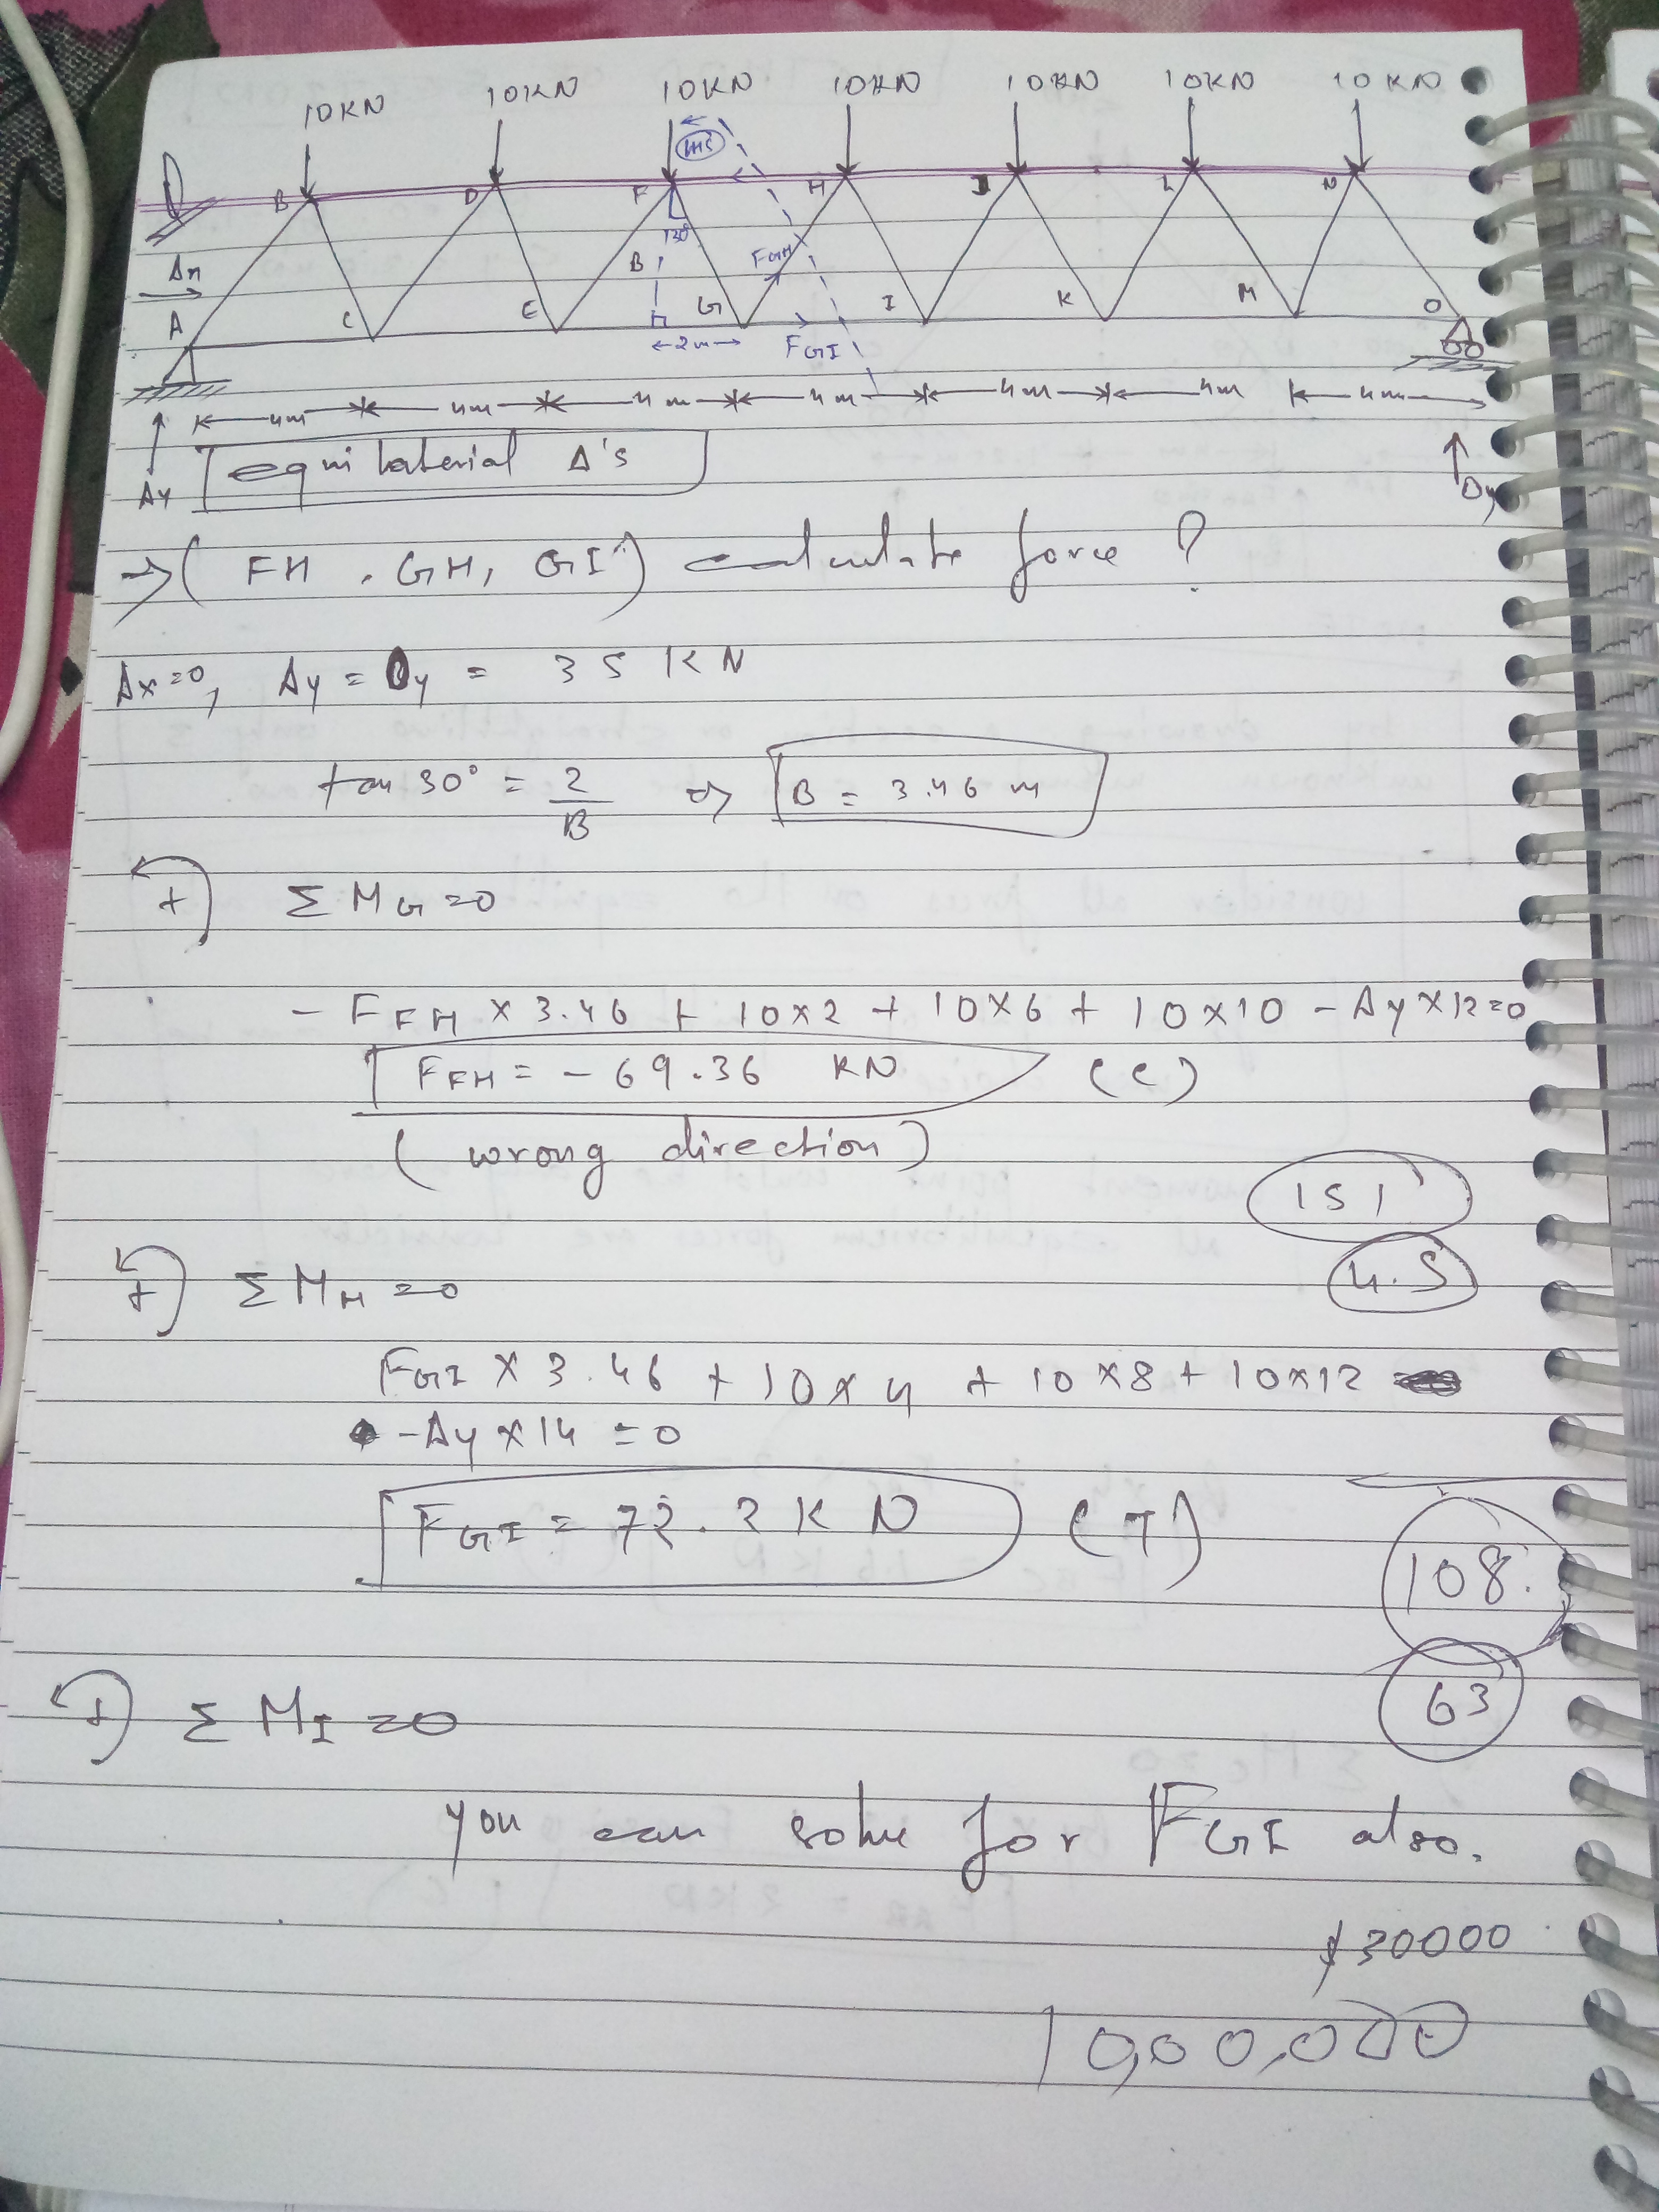 10KN 10KN 10KN 10KN 10KN 10KN 10KN
B D F H J L N
30°
B FGH
Ax
A C E G I K M O
←2m→ FGI
4m 4m 4m 4m 4m 4m 4m
Ay equilaterial Δ's Oy
→ ( FH , GH, GI ) calculate force ?
Ax=0, Ay = Oy = 35 KN
tan 30° = 2/B ⇒ B = 3.46 m
+ Σ MG =0
- FFH × 3.46 + 10×2 + 10×6 + 10×10 - Ay×12=0
FFH = - 69.36 KN (C)
( wrong direction )
151
4.5
+ Σ MH =0
FGI × 3.46 + 10×4 + 10×8 + 10×12
- Ay × 14 = 0
FGI = 72.2 KN (T)
108.
63
+ Σ MI =0
you can solve for FGI also.
$30000
10,00,000